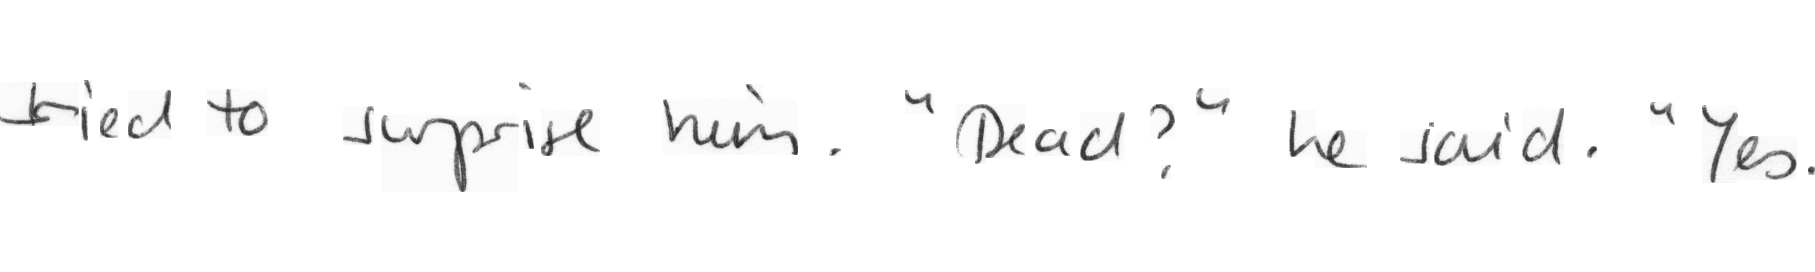 tried to surprise him. "Dead?" he said. "Yes.